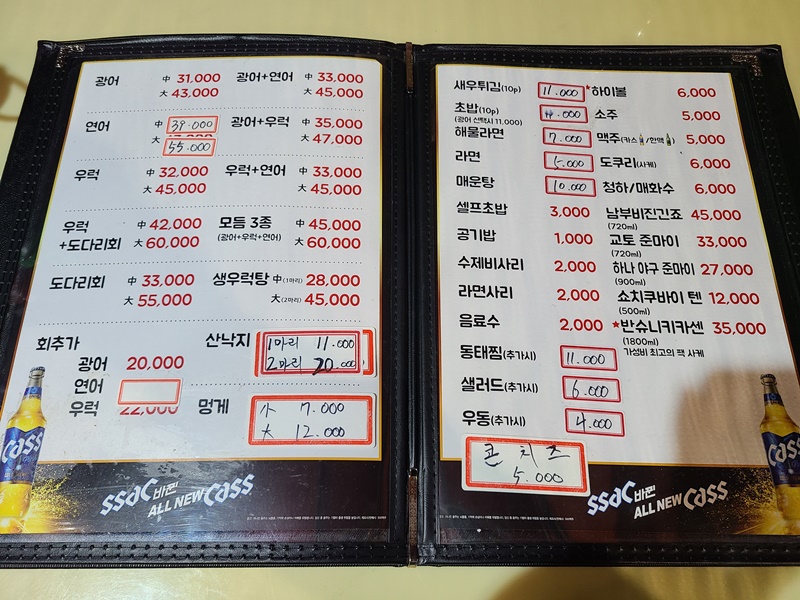 광어 中 31,000 광어+연어 中 33,000
大 43,000 大 45,000
연어 中 39.000 광어+우럭 中 35,000
大 55.000 大 47,000
우럭 中 32,000 우럭+연어 中 33,000
大 45,000 大 45,000
우럭 中 42,000 모듬 3종 中 45,000
+도다리회 大 60,000 (광어+우럭+연어) 大 60,000
도다리회 中 33,000 생우럭탕 中(1마리) 28,000
大 55,000 大(2마리) 45,000
회추가 산낙지 1마리 11.000
광어 20,000 2마리 20.000
연어
우럭 22,000 멍게 小 7.000
大 12.000
ssac바뀐
ALL NEW cass
cass
새우튀김(10p) 11.000 *하이볼 6,000
초밥(10p) 소주 5,000
(광어 선택시 11.000)
해물라면 7.000 맥주(카스/한맥) 5,000
라면 5.000 도쿠리(사케) 6,000
매운탕 10.000 청하/매화수 6,000
셀프초밥 3,000 남부비진긴죠 45,000
(720ml)
공기밥 1,000 교토 준마이 33,000
(720ml)
수제비사리 2,000 하나 야구 준마이 27,000
(900ml)
라면사리 2,000 쇼치쿠바이 텐 12,000
(500ml)
음료수 2,000 *반슈니키카센 35,000
(1800ml)
가성비 최고의 팩 사케
동태찜(추가시) 11.000
샐러드(추가시) 6.000
우동(추가시) 4.000
콘 치즈
5.000
ssac바뀐
ALL NEW cass
cass